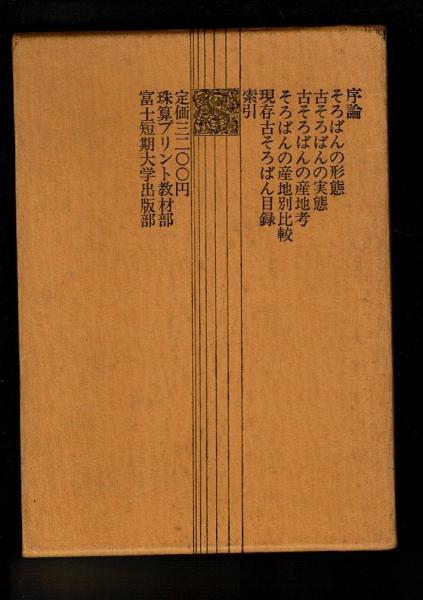 序論
そろばんの形態
古そろばんの実態
古そろばんの産地考
そろばんの産地別比較
現存古そろばん目録
索引
定価三二〇〇円
珠算プリント教材部
富士短期大学出版部